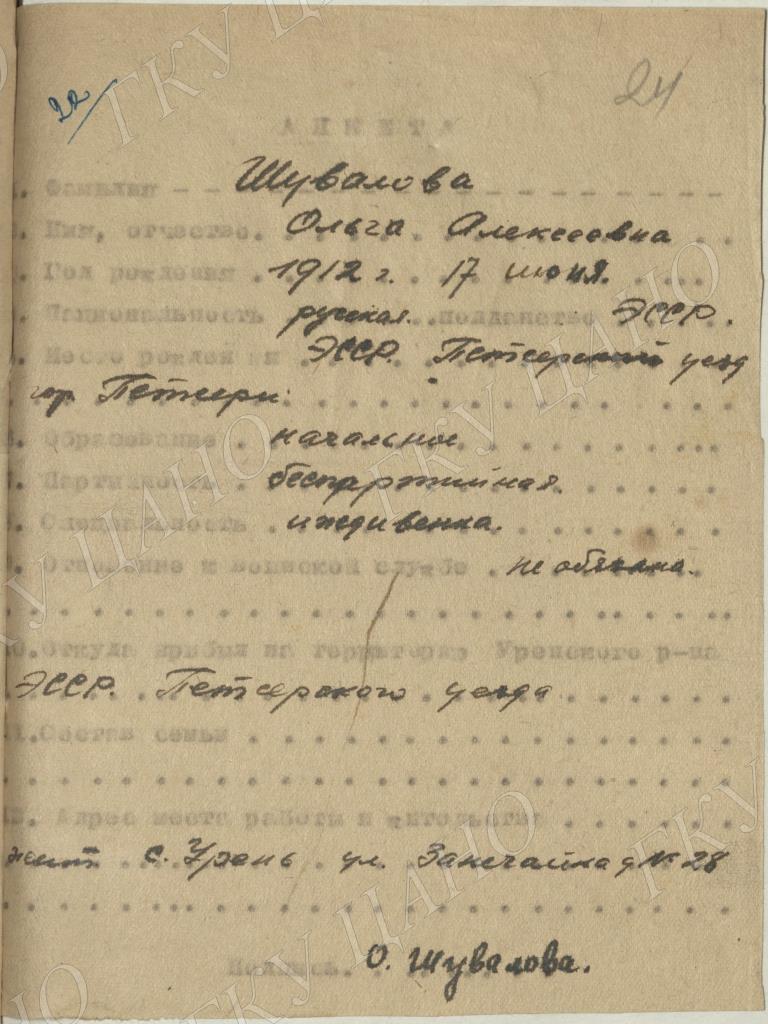 24
22/
АНКЕТА
1. Фамилия - - Шувалова - - - - - - - -
2. Имя, отчество. Ольга Алексеевна
3. Год рождения 1912 г. 17 июня.
4. Национальность русская. подданство ЭССР.
5. Место рождения ЭССР. Петсерский уезд
гор. Петсери.
6. Образование начальное
7. Партийность беспартийная.
8. Специальность иждивенка.
9. Отношение к воинской службе не обязана.
10. Откуда прибыл на территорию Уренского р-на
ЭССР. Петсерского уезда
11. Состав семьи
12. Адрес места работы и жительства
жит. с. Урень ул. д № 28
Подпись. О. Шувалова.
ГКУ ЦАНО